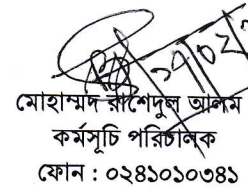 মোহাম্মদ রাশেদুল আলম
কর্মসূচি পরিচালক
ফোন : ০২৪১০১০৩৪১